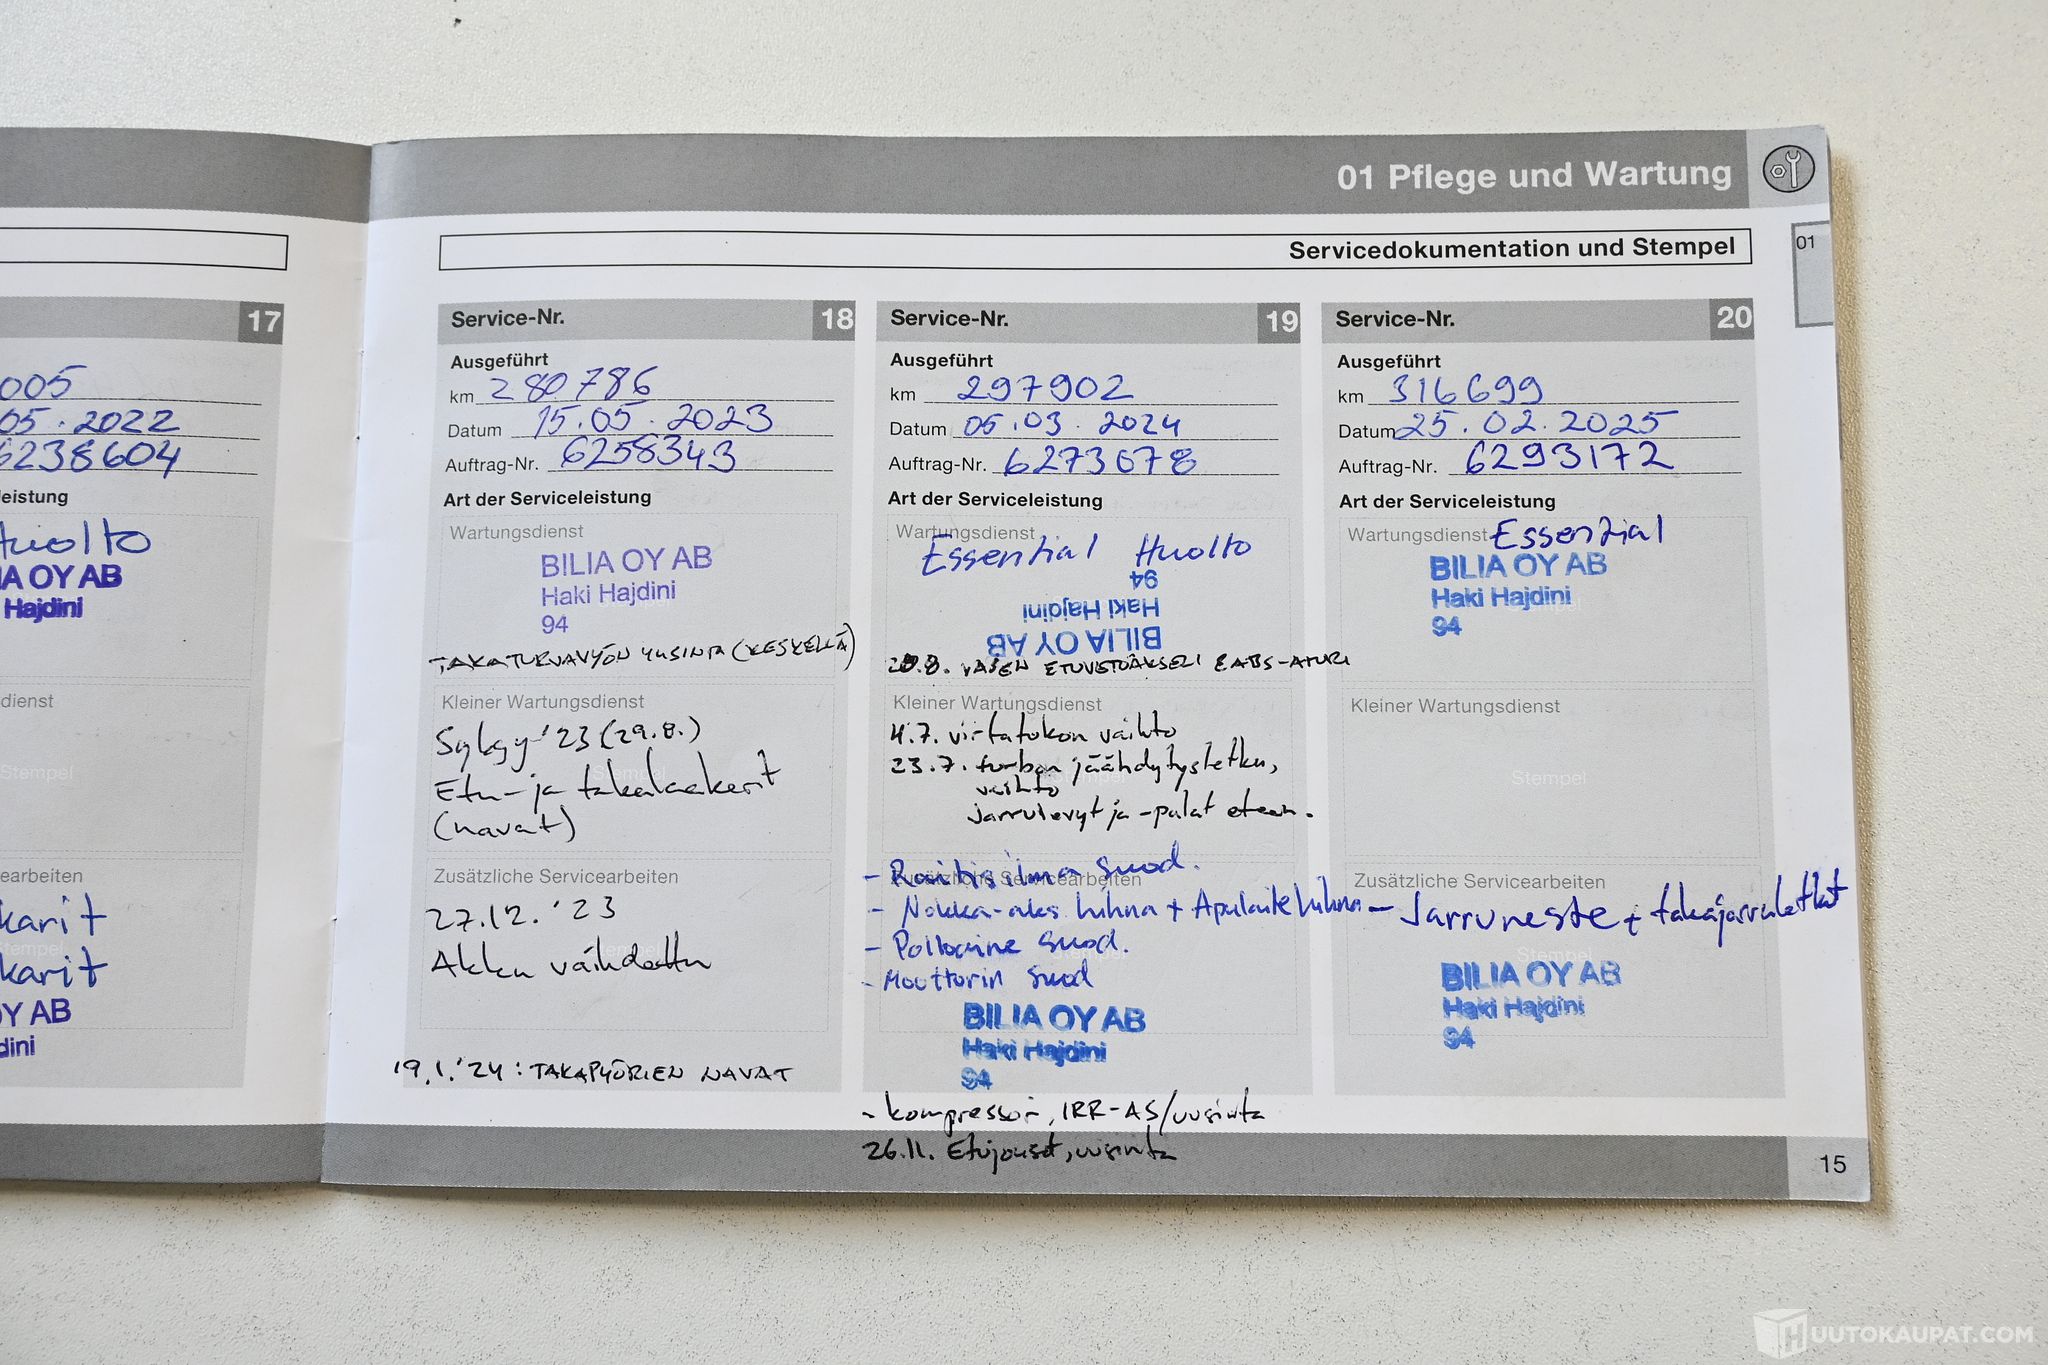 17
005
05.2022
6238604
leistung
Huolto
IA OY AB
Hajdini
dienst
Stempel
earbeiten
karit
Stempel
karit
Y AB
dini
01 Pflege und Wartung
01
Servicedokumentation und Stempel
Service-Nr. 18
Ausgeführt
km 280786
Datum 15.05.2023
Auftrag-Nr. 6258343
Art der Serviceleistung
Wartungsdienst
BILIA OY AB
Haki Hajdini
94
TAKATURVAVYÖN UUSINTA (KESKELLÄ)
Kleiner Wartungsdienst
Syksy '23 (29.8.)
Etu- ja takalaakerit
(navat)
Zusätzliche Servicearbeiten
27.12. '23
Akku vaihdettu
19.1.'24: TAKAPYÖRIEN NAVAT
Service-Nr. 19
Ausgeführt
km 297902
Datum 05.03.2024
Auftrag-Nr. 6273678
Art der Serviceleistung
Wartungsdienst
Essential Huolto
94
Haki Hajdini
BILIA OY AB
VASEN ETUVETOAKSELI & ABS-ANTURI
Kleiner Wartungsdienst
4.7. virtalukon vaihto
23.7. turbon jäähdytysletku,
vaihto
jarrulevyt ja -palat eteen.
- Raitisilma Suod.
Zusätzliche Servicearbeiten
- Nokka-aks. hihna + Apulaitehihna
- Pollonine Suod.
- Moottorin Suod
BILIA OY AB
Haki Hajdini
94
- kompressori, IRR-AS/uusinta
26.11. Etujouset, uusinta
Service-Nr. 20
Ausgeführt
km 316699
Datum 25.02.2025
Auftrag-Nr. 6293172
Art der Serviceleistung
Wartungsdienst Essential
BILIA OY AB
Haki Hajdini
94
Kleiner Wartungsdienst
Stempel
Zusätzliche Servicearbeiten
- Jarruneste + takajarruletkut
BILIA OY AB
Haki Hajdini
94
15
HUUTOKAUPAT.COM